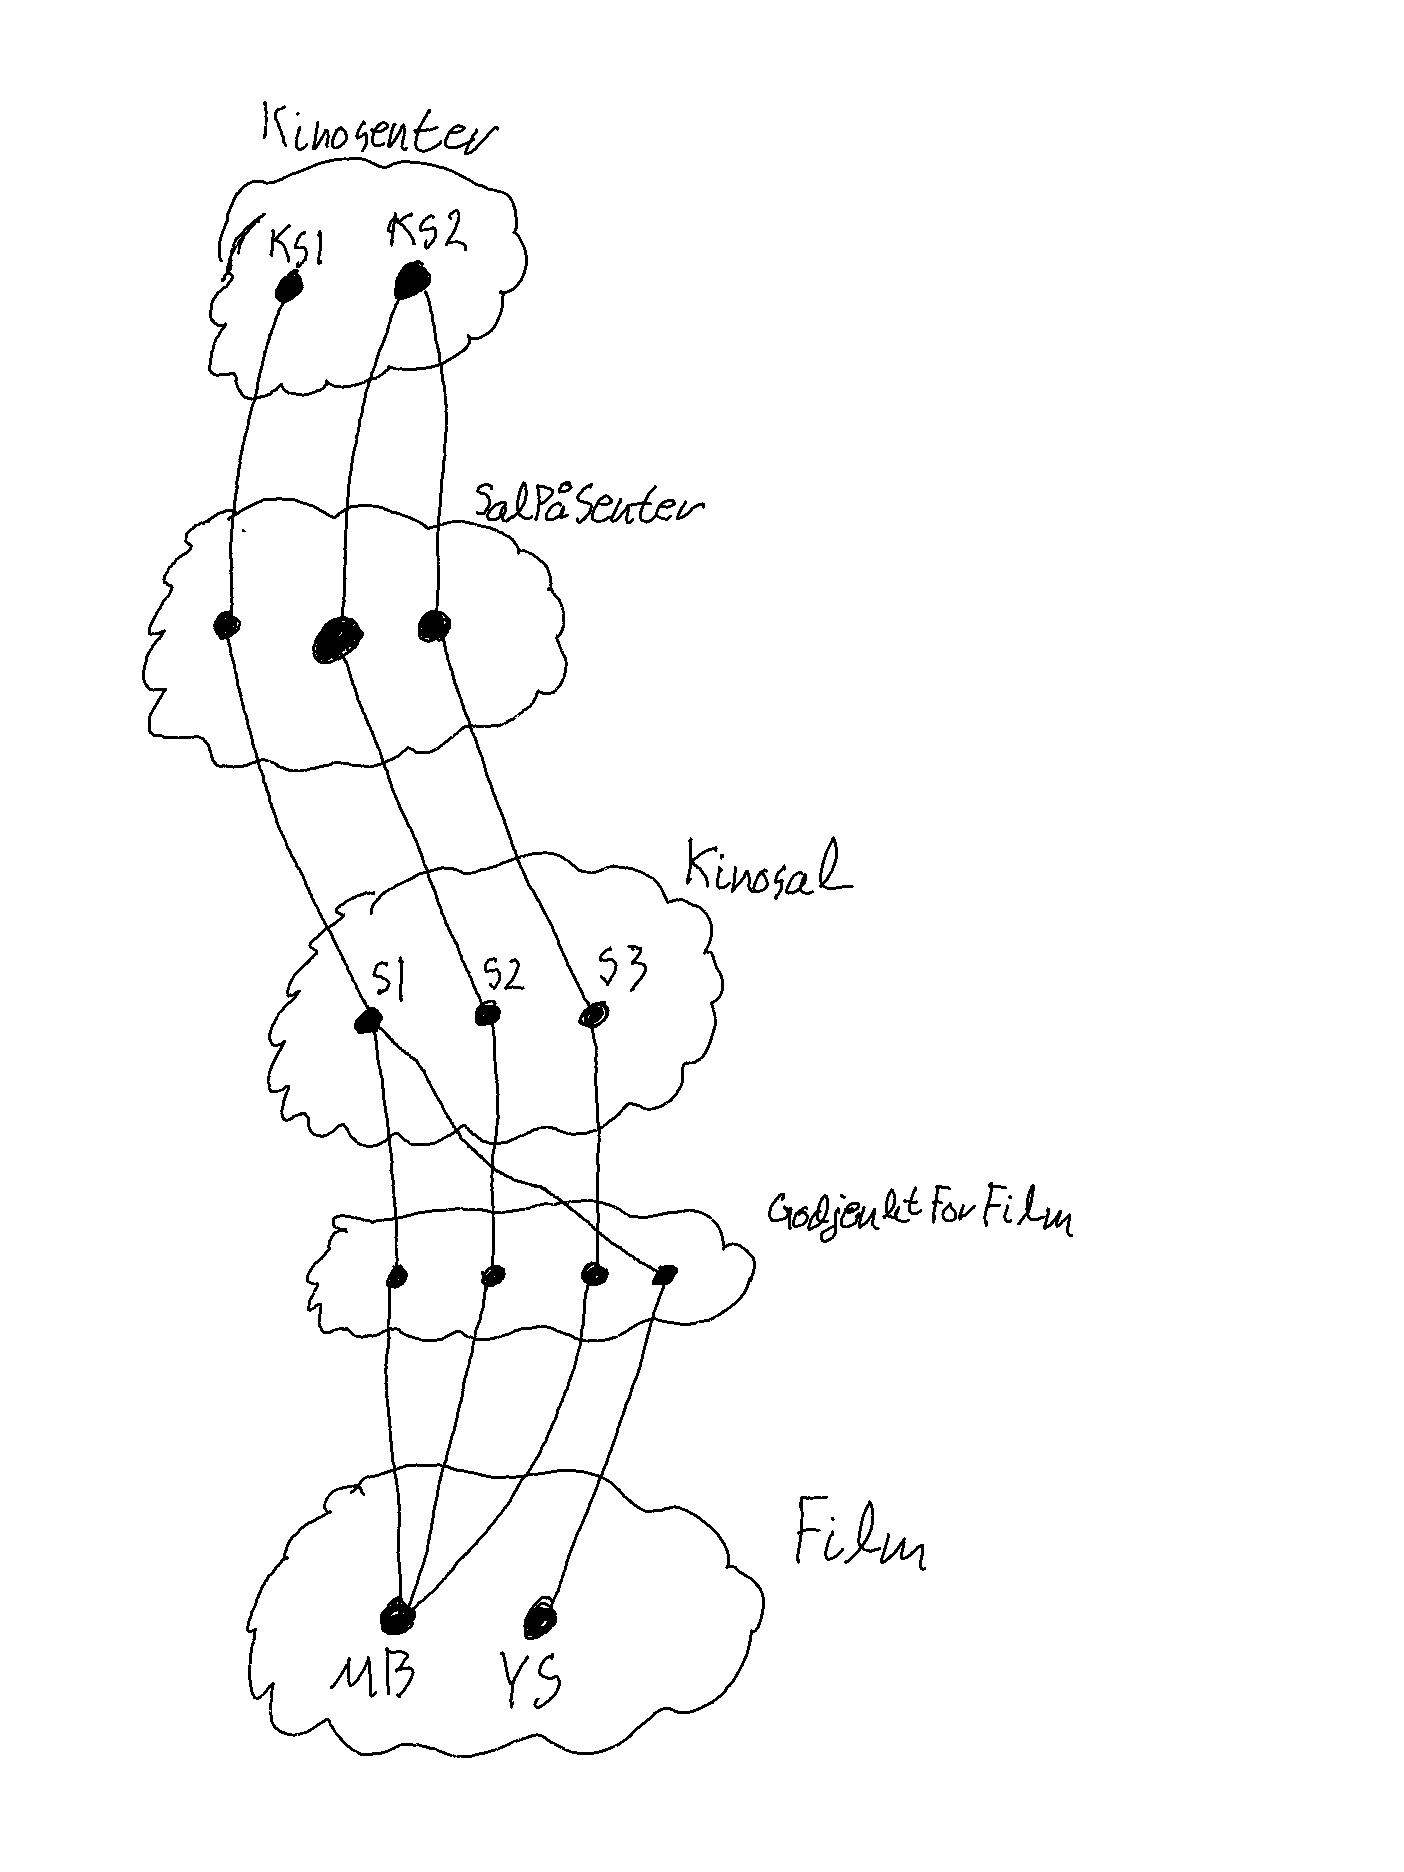 Kinosenter
KS1 KS2
SalPåSenter
Kinosal
S1 S2 S3
GodjentForFilm
Film
MB YS